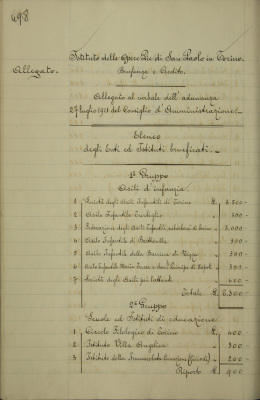 498
Istituto delle Opere Pie di San Paolo in Torino.
Beneficenza e Credito.
Allegato.
Allegato al verbale dell'adunanza
27 luglio 1911 del Consiglio d'Amministrazione.
Elenco
degli Enti ed Istituti beneficati.
1° Gruppo
Asili d'infanzia
1 Società degli Asili Infantili di Torino £.
2 Asilo Infantile
3 Federazione degli Asili Infantili suburbani di Torino " 3.000 -
4 Asilo Infantile di " 300 -
5 Asilo Infantile della Barriera di Nizza " 300 -
6 Asilo Infantile Principe di Napoli " 300 -
7 Società degli Asili pei lattanti " 400 -
Totale £.
2° Gruppo
Scuole ed Istituti di educazione
1 Circolo Filologico di Torino £. 400 -
2 Istituto Villa Angelica " 300 -
3 Istituto della Immacolata Concezione " 200 -
Riporto £. 900